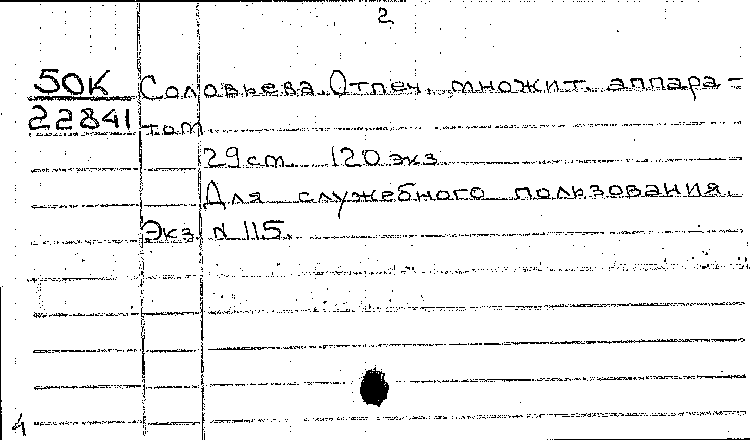 2
50К Соловьева. Отпеч. множит. аппара-
22841 том.
29 см. 120 экз.
Для служебного пользования.
Экз. № 115.
4